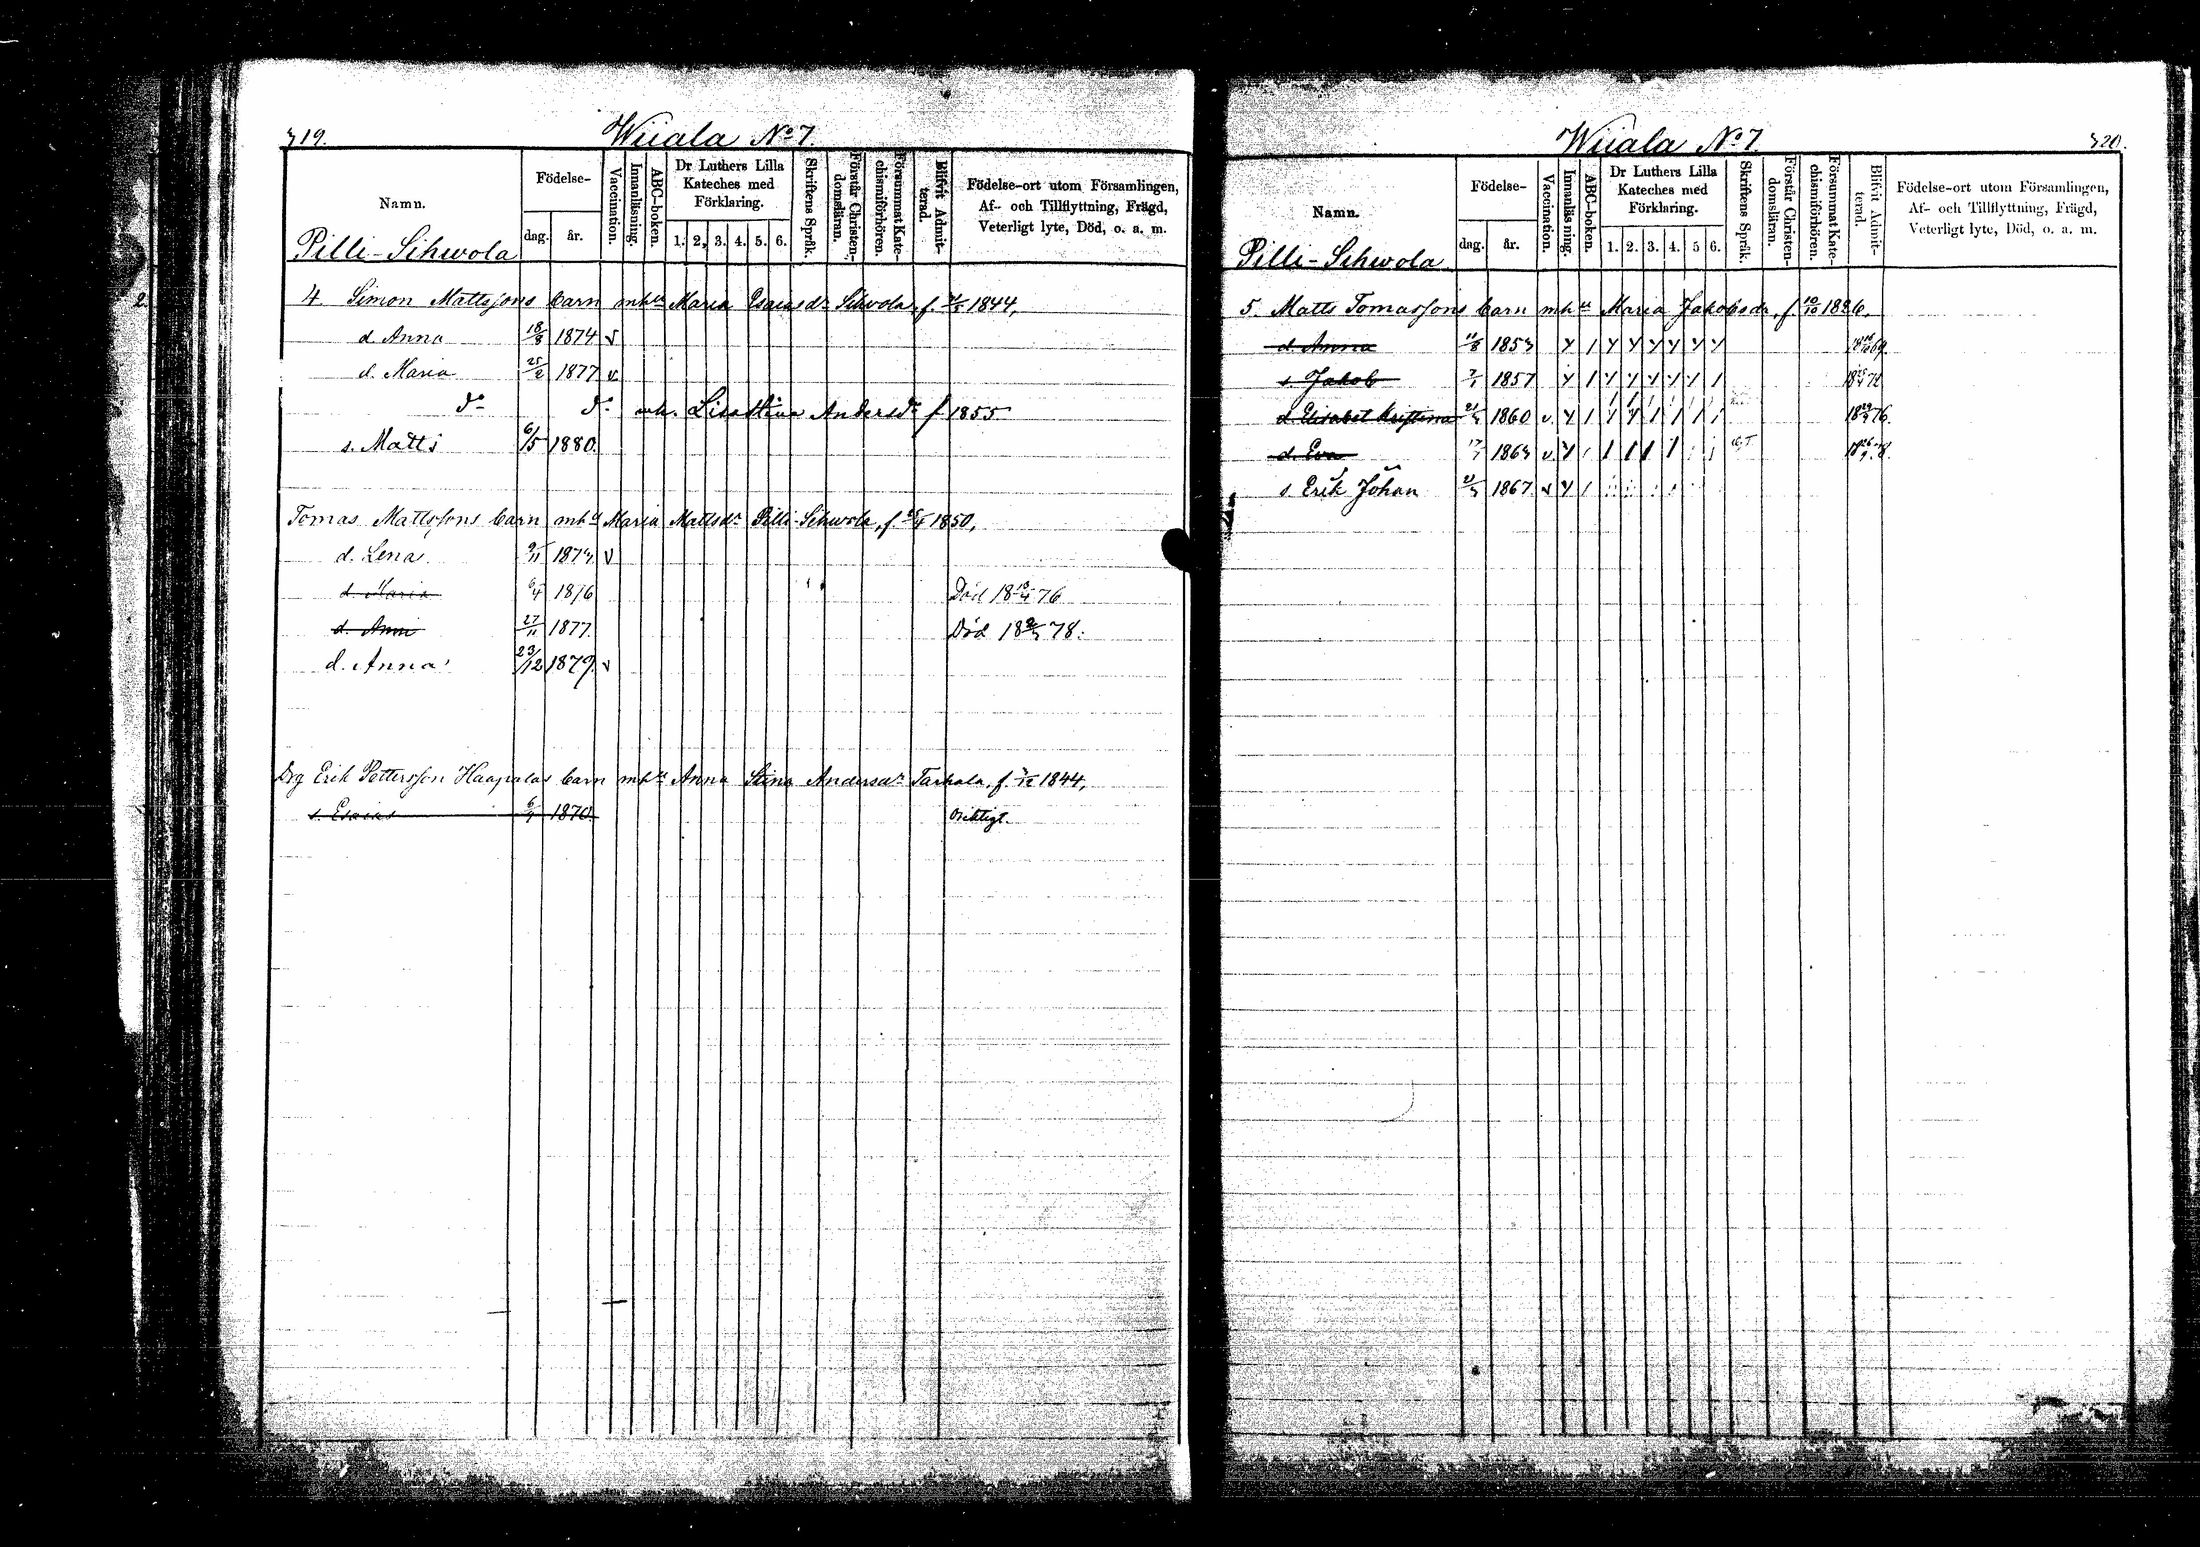 319.
Wiiala No 7.
Namn.
Födelse-
dag.
år.
Vaccination.
Innanläsning.
ABC-boken.
Dr Luthers Lilla Kateches med Förklaring.
1. 2. 3. 4. 5. 6.
Skriftens Språk.
Förstår Christendomsläran.
Försummat Katechismiförhören.
Blifvit Admitterad.
Födelse-ort utom Församlingen,
Af- och Tillflyttning, Frägd,
Veterligt lyte, Död, o. a. m.
Pilli-Sihvola
4 Simon Mattssons barn mhu Maria Esaiasdr Sihvola, f. 1844,
d. Anna 18/8 1874 v
d. Maria 25/2 1877 v
do do mh. Lisa Stina Andersdr f 1855
s. Matts 6/5 1880.
Tomas Mattssons barn mhu Maria Mattsdr Pilli-Sihvola, f. 1850,
d. Lena 9/11 1873 v
d. Maria 6/4 1876 Död 18 18/4 76
d. Anni 27/11 1877. Död 18 78.
d. Anna 23/12 1879. v
Drg Erik Pettersson Haapalas barn mhu Anna Stina Andersdr Tarkala, f. 1844,
s. Esaias 1870. oriktigt.
Wiiala No 7
320.
Namn.
Födelse-
dag.
år.
Vaccination.
Innanläsning.
ABC-boken.
Dr Luthers Lilla Kateches med Förklaring.
1. 2. 3. 4. 5 6.
Skriftens Språk.
Förstår Christendomsläran.
Försummat Katechismiförhören.
Blifvit Admitterad.
Födelse-ort utom Församlingen,
Af- och Tillflyttning, Frägd,
Veterligt lyte, Död, o. a. m.
Pilli-Sihvola
5. Matts Tomassons barn mhu Maria Jakobsdr, f. 10/10 1826.
d. Anna 11/8 1853
s. Jakob 1857
d. Elisabet Kristina 1860 v
d. Eva 1863 v
s. Erik Johan 1867 v